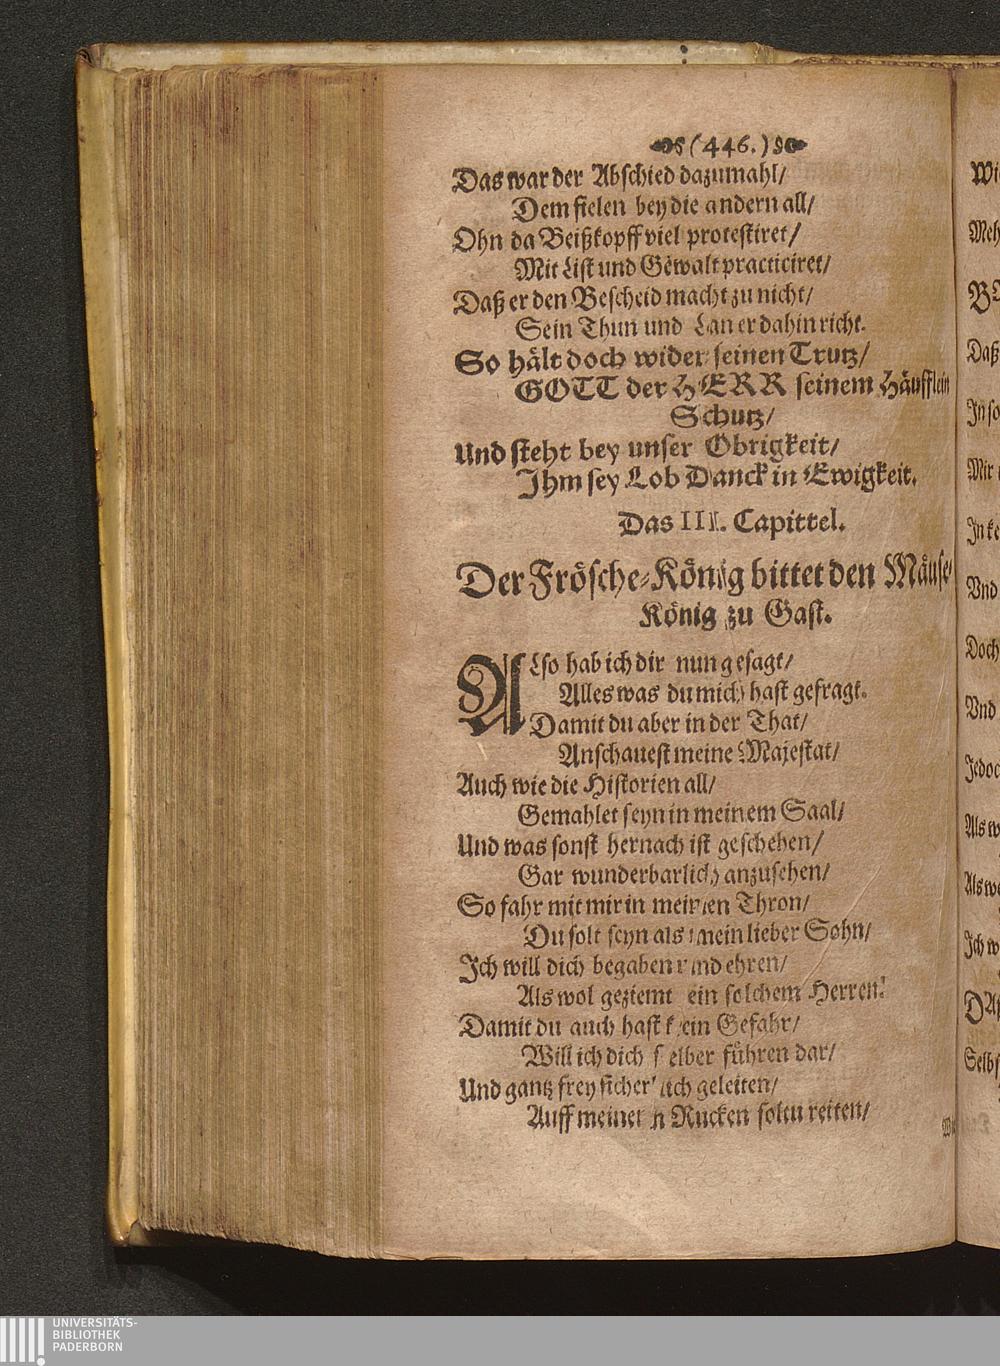 (446.)
Das war der Abschied dazumahl/
Dem fielen bey die andern all/
Ohn da Beißkopff viel protestiret/
Mit List und Gewalt practiciret/
Daß er den Bescheid macht zu nicht/
Sein Thun und dahin richt.
So hält doch wider seinen Trutz/
GOTT der HERR seinem Häufflein
Schutz/
Und steht bey unser Obrigkeit/
Ihm sey Lob Danck in Ewigkeit.
Das III. Capittel.
Der Frösche-König bittet den Mäuse-
König zu Gast.
Also hab ich dir nun gesagt/
Alles was du mich hast gefragt.
Damit du aber in der That/
Anschauest meine Majestat/
Auch wie die Historien all/
Gemahlet seyn in meinem Saal/
Und was sonst hernach ist geschehen/
Gar wunderbarlich anzusehen/
So fahr mit mir in meinen Thron/
Du solt seyn als mein lieber Sohn/
Ich will dich begaben und ehren/
Als wol geziemt ein solchem Herren!
Damit du auch hast kein Gefahr/
Will ich dich selber führen dar/
Und gantz frey sicher dich geleiten/
Auff meinen Rucken soltu reiten/
Wi
Meh
Daß
In so
Mir
In ke
Vnd
Doch
Vnd
Jedoc
Als w
Als we
Ich w
Selbs
UNIVERSITÄTS-
BIBLIOTHEK
PADERBORN